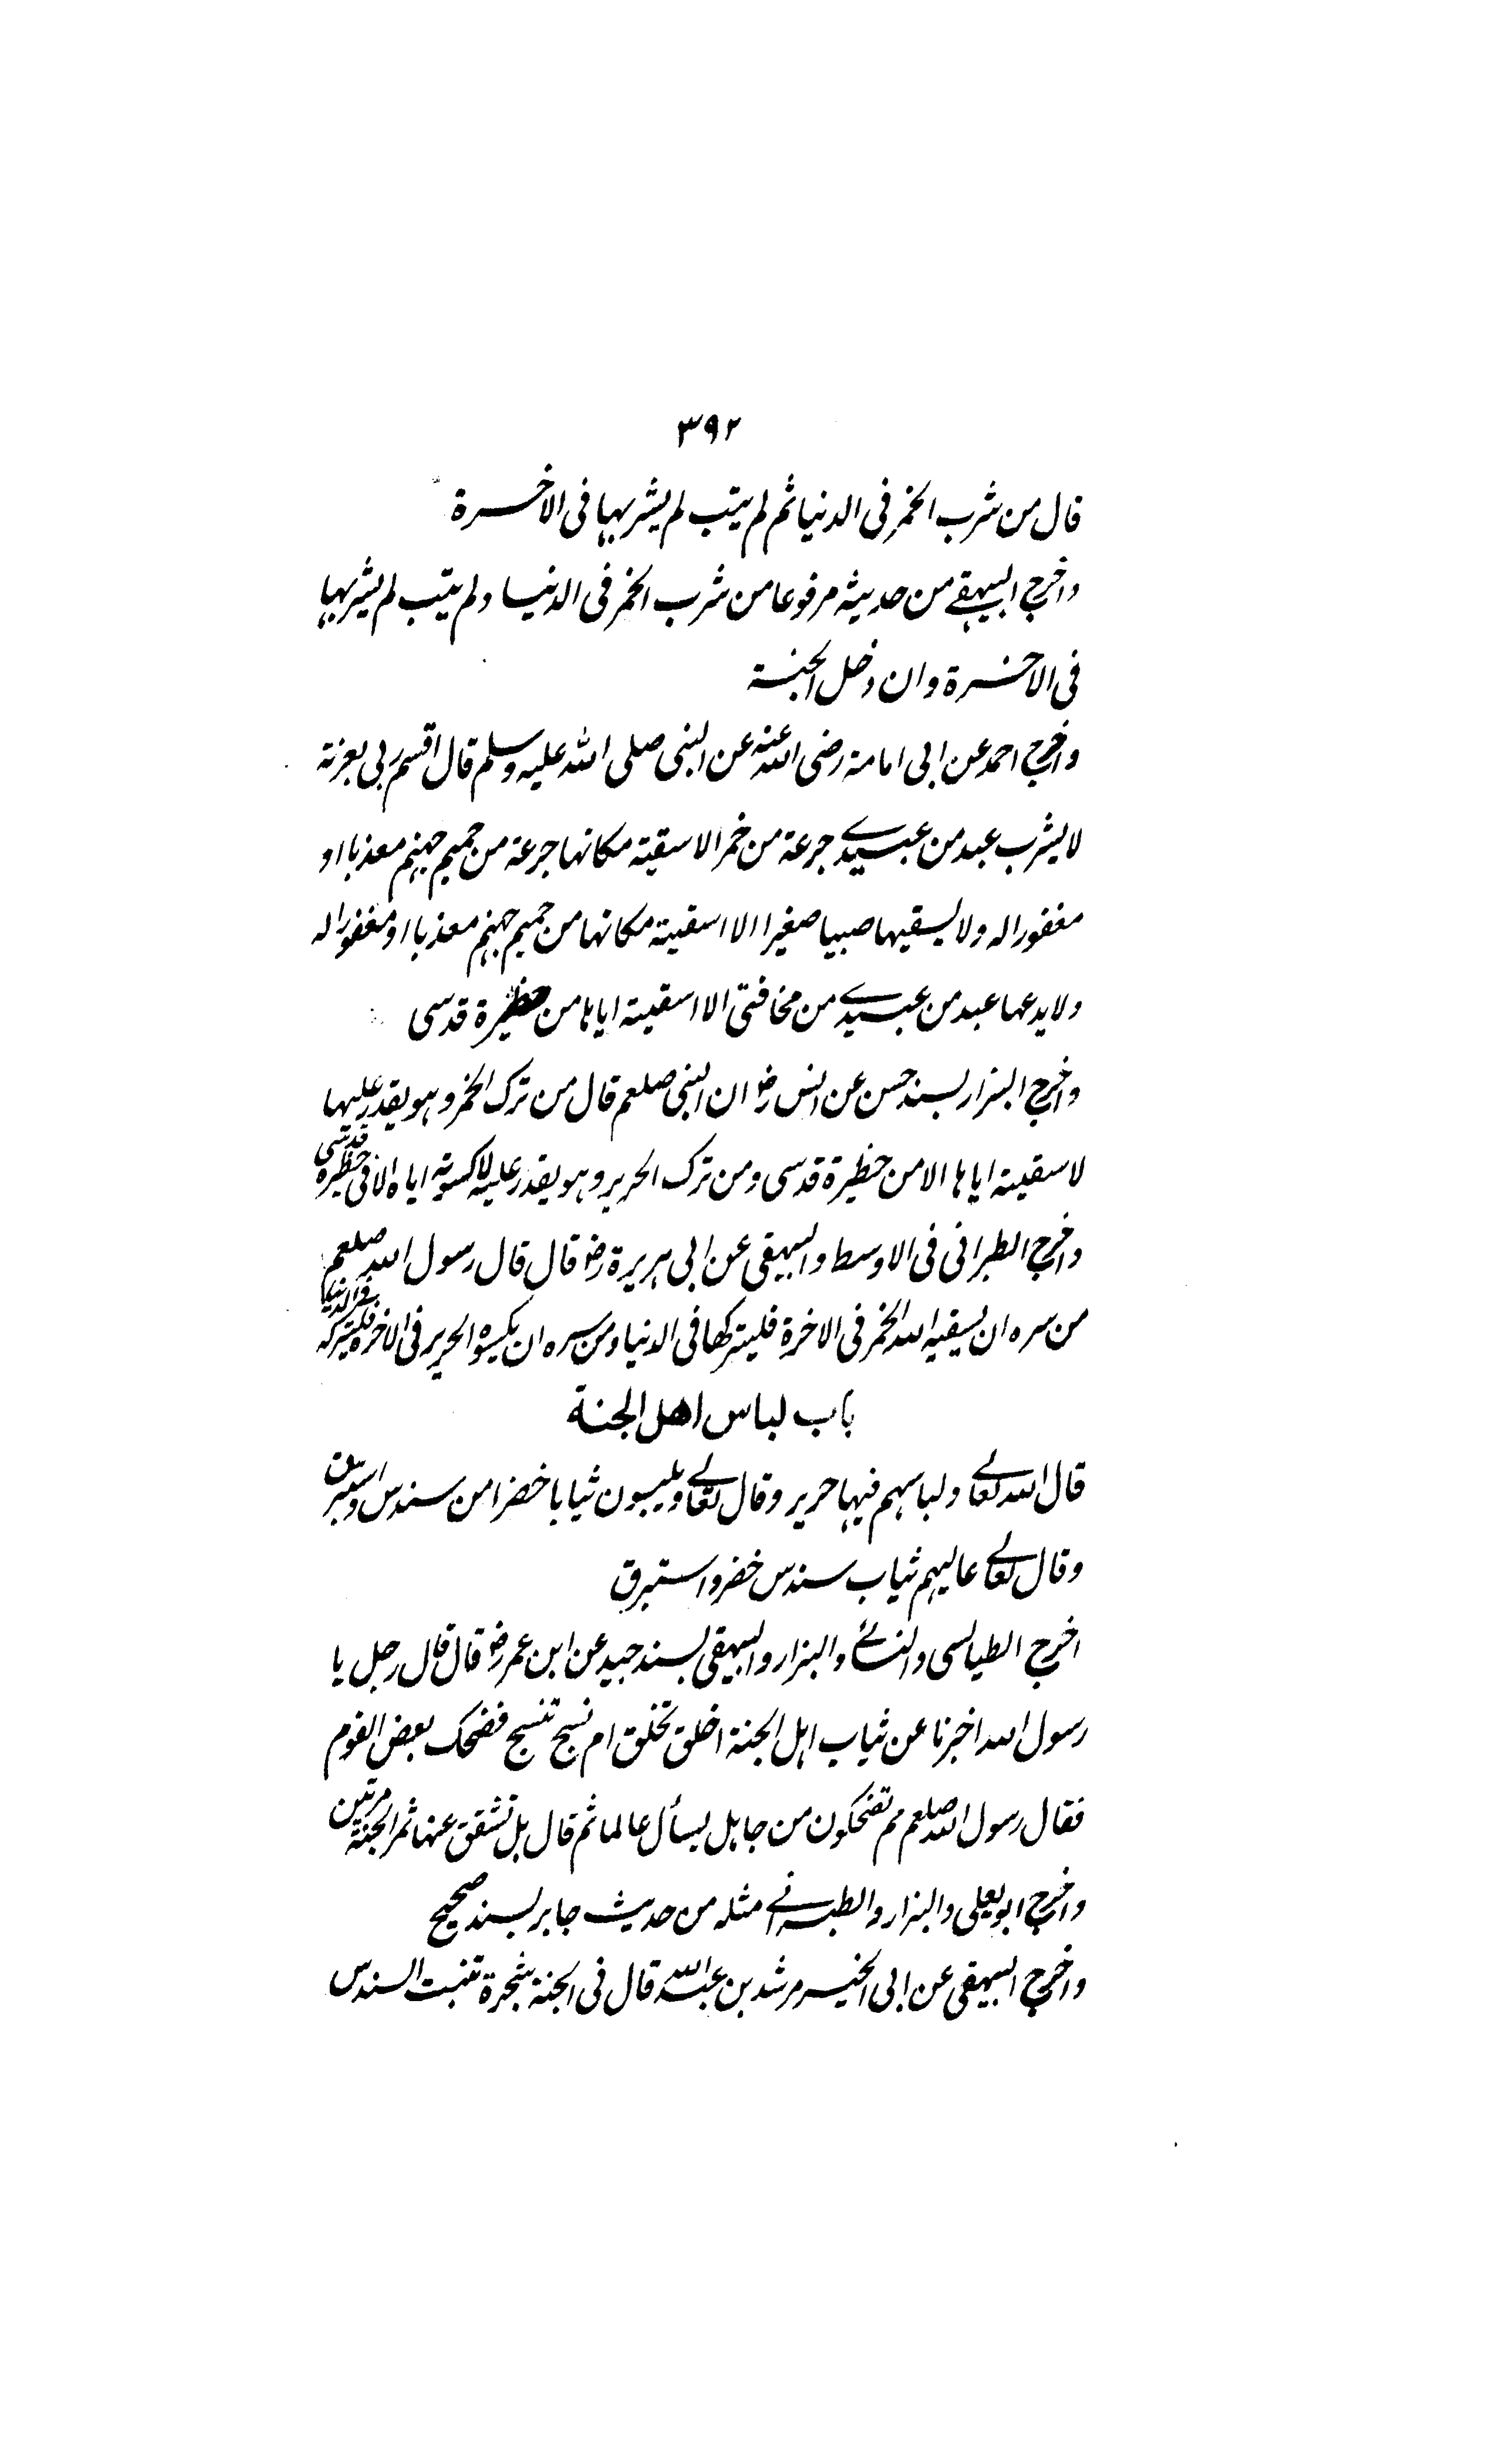 ٣٩٢
قال من شرب الخمر فى الدنيا ثم لم يتب لم يشربها فى الاخرة
واخرج البيهقے من حديثه مرفوعا من شرب الخمر فى الدنيا ولم يتب لم يشربها
فى الاخرة وان دخل الجنة
واخرج احمد عن ابى امامة رضى الله عنه عن النبى صلى الله عليه وسلم قال اقسم ربى بعزته
لا يشرب عبد من عبيدے جرعة من خمر الا سقيته مكانها جرعة من حميم جهنم معذبا او
مغفورا له ولا يسقيها صبيا صغيرا الا اسقيته مكانها من حميم جهنم معذبا او مغفورا له
ولا يدعها عبد من عبيدے من مخافتى الا اسقيته اياها من حظيرة قدسى
واخرج البزار بسند حسن عن انس رض ان النبى صلعم قال من ترك الخمر وهو يقدر عليها
لا سقينه اياها الا من حظيرة قدسى ومن ترك الحرير وهو يقدر عليه لاكسونه اياه الا فى حظيرة قدسى
واخرج الطبرانى فى الاوسط والبيهقى عن ابى هريرة رض قال قال رسول الله صلعم
من سره ان يسقيه الله الخمر فى الاخرة فليتركها فى الدنيا ومن سره ان يكسوه الحرير فى الاخرة فليتركه فى الدنيا
باب لباس اهل الجنة
قال الله تعالے ولباسهم فيها حرير وقال تعالے ويلبسون ثيابا خضرا من سندس واستبرق
وقال تعالے عاليهم ثياب سندس خضر واستبرق
اخرج الطيالسى والنسائے والبزار والبيهقى بسند جيد عن ابن عمر رض قال قال رجل يا
رسول الله اخبرنا عن ثياب اهل الجنة اخلق تخلق ام نسج تنسج فضحك بعض القوم
فقال رسول الله صلعم مم تضحكون من جاهل يسأل عالما ثم قال بل تشقق عنها ثمر الجنة مرتين
واخرج ابو يعلى والبزار والطبرانے مثله من حديث جابر بسند صحيح
واخرج البيهقى عن ابى الخير مرشد بن عبد الله قال فى الجنة شجرة تنبت السندس